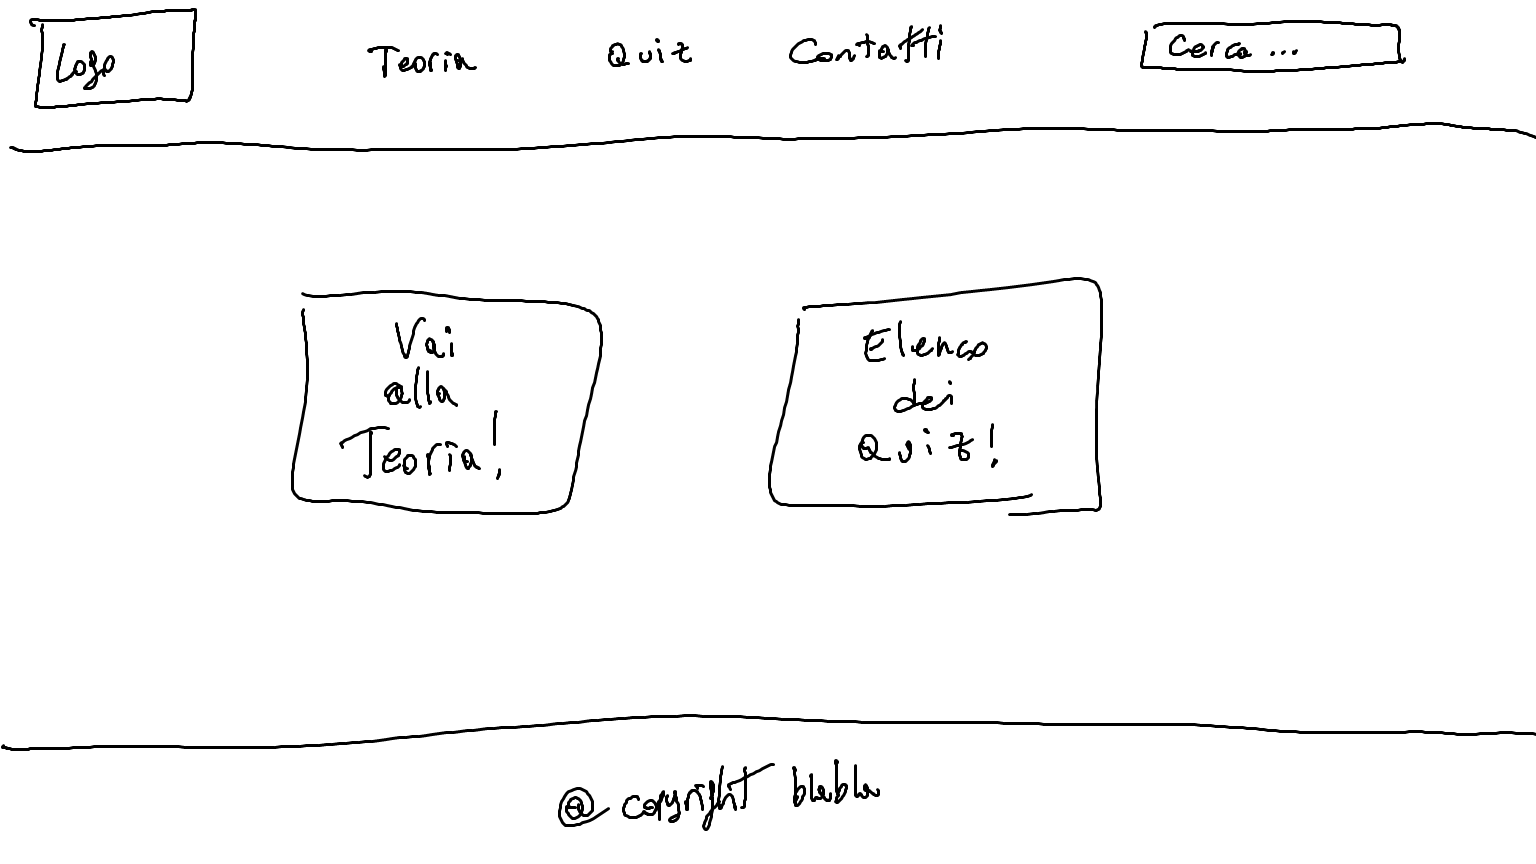 Logo
Teoria Quiz Contatti Cerca ...
Vai
alla
Teoria!
Elenco
dei
Quiz!
@ copyright blabla